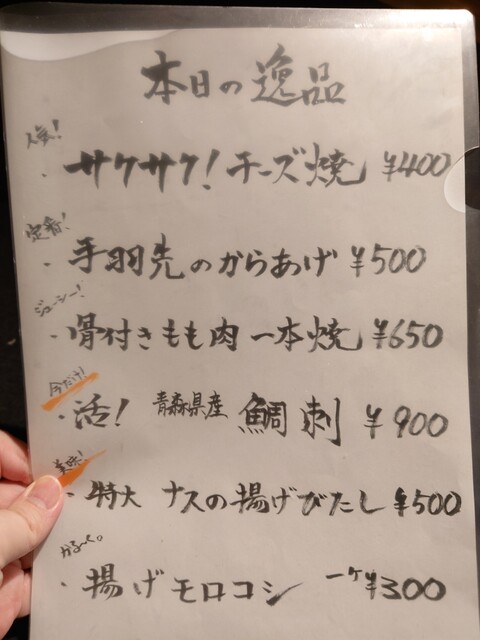 本日の逸品
人気!
・サクサク!チーズ焼 ¥400
定番!
・手羽先のからあげ ¥500
ジューシー!
・骨付きもも肉一本焼 ¥650
今だけ!
・活! 青森県産 鯛刺 ¥900
美味!
・特大 ナスの揚げびたし ¥500
かる〜く。
・揚げモロコシ 一ヶ¥300